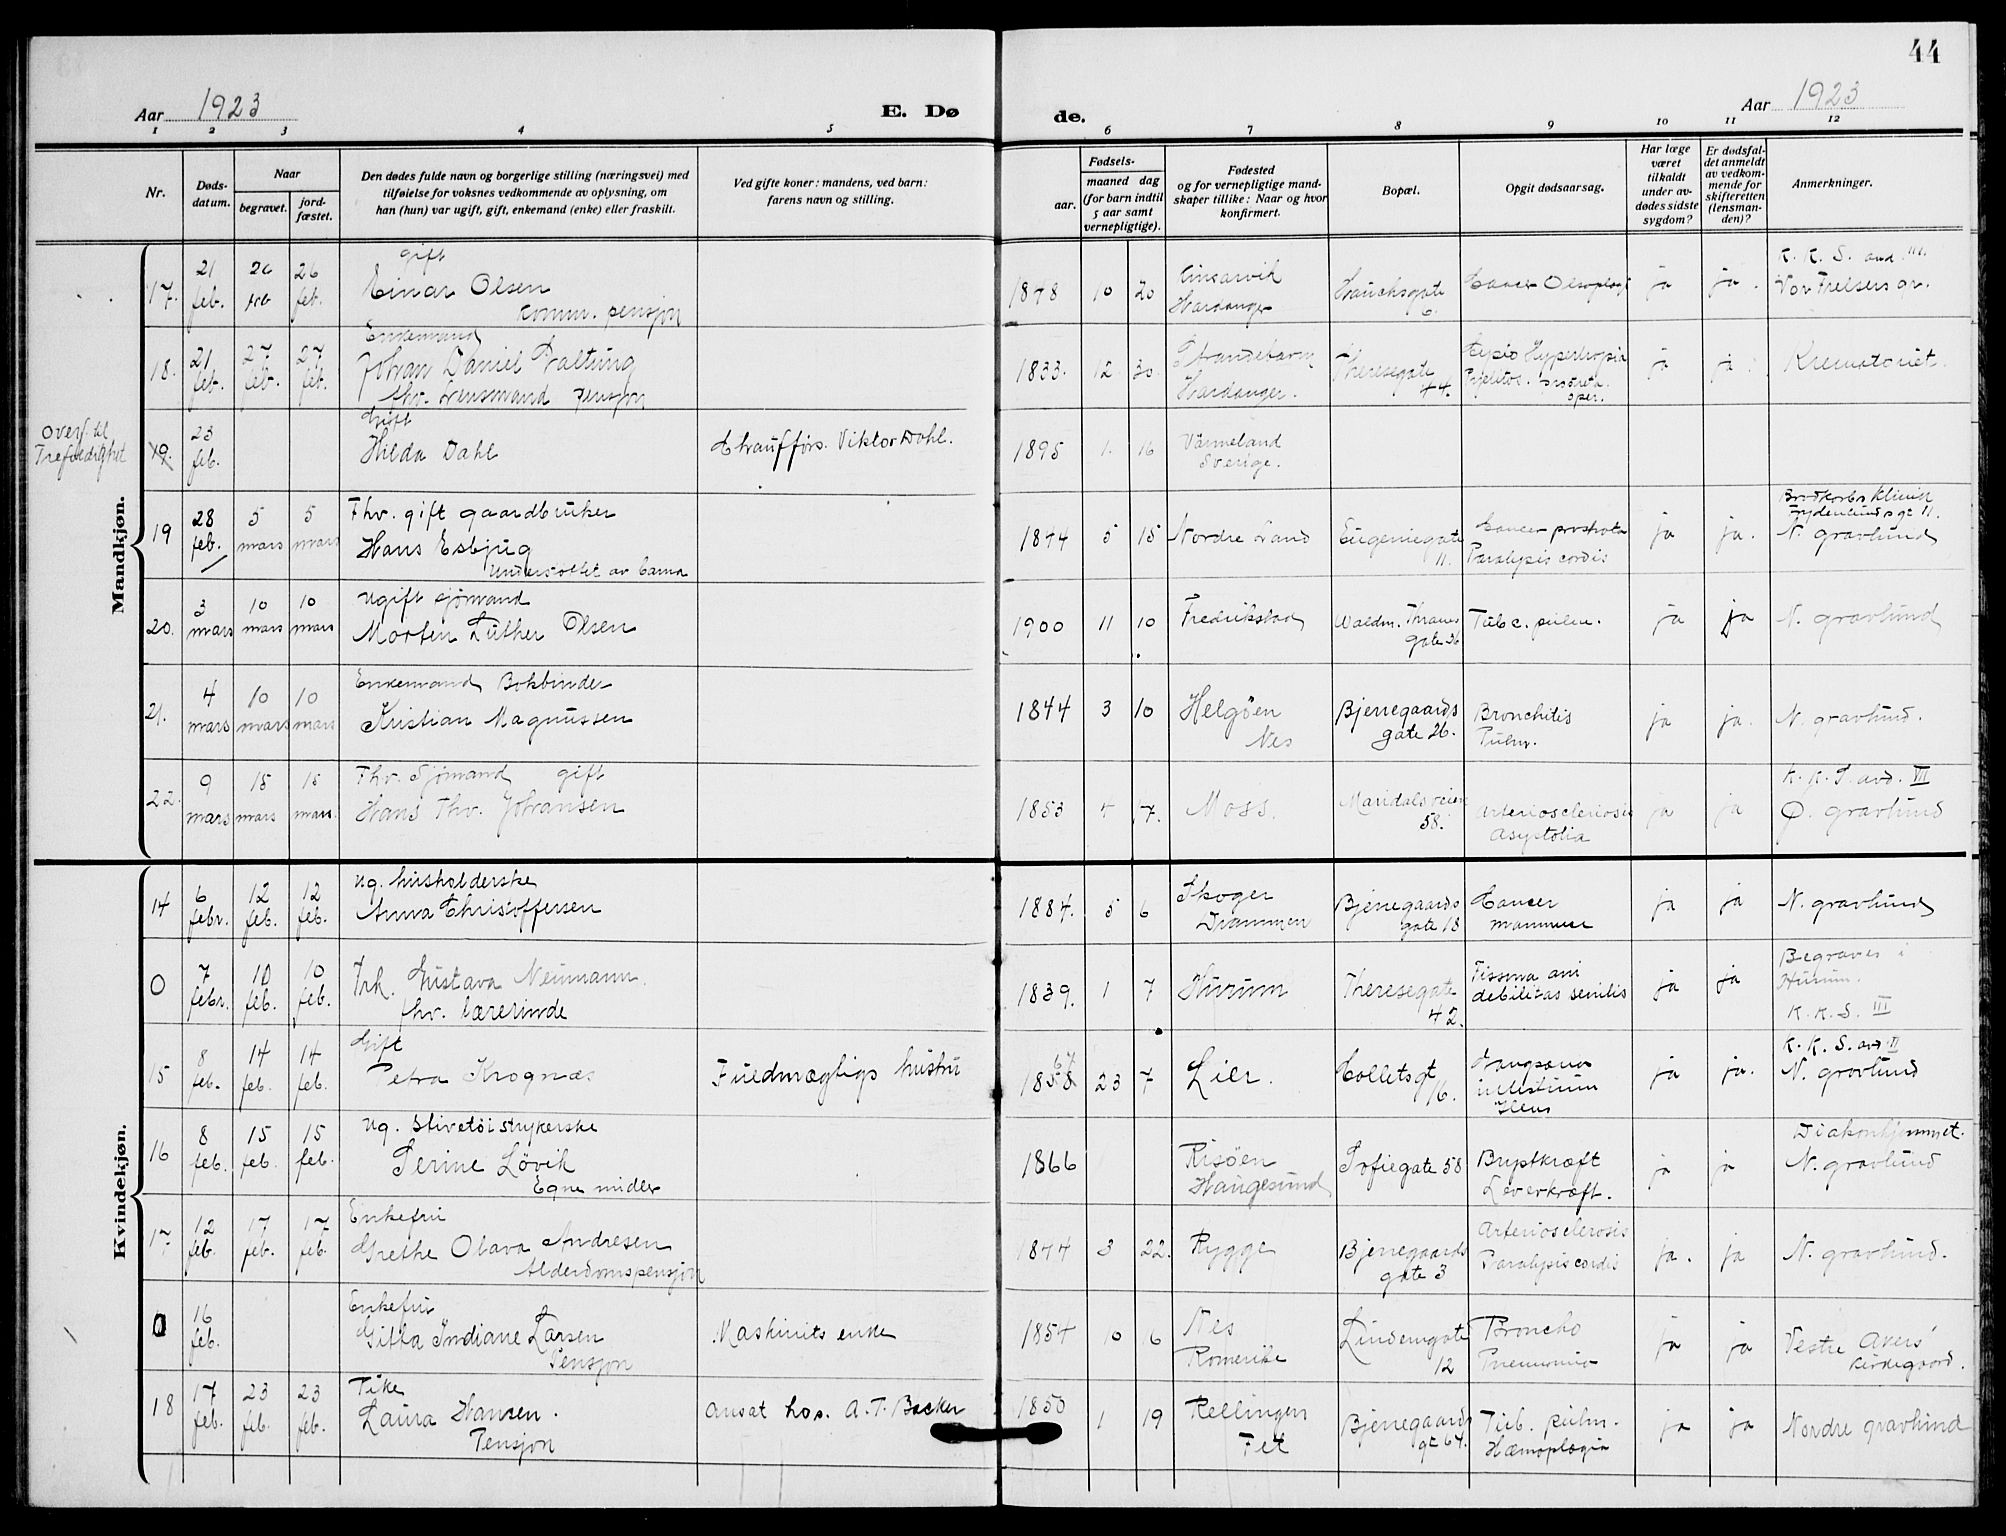 44
Aar 1923
E. Dø
de.
Aar 1923
1 2 3 4 5 6 7 8 9 10 11 12
Nr.
Døds-
datum.
Naar
begravet.
jord-
fæstet.
Den dødes fulde navn og borgerlige stilling (næringsvei) med
tilføielse for voksnes vedkommende av oplysning, om
han (hun) var ugift, gift, enkemand (enke) eller fraskilt.
Ved gifte koner: mandens, ved barn:
farens navn og stilling.
Fødsels-
aar.
maaned dag
(for barn indtil
5 aar samt
vernepligtige).
Fødested
og for vernepligtige mand-
skaper tillike: Naar og hvor
konfirmert.
Bopæl.
Opgit dødsaarsag.
Har læge
været
tilkaldt
under av-
dødes sidste
sygdom?
Er dødsfal-
det anmeldt
av vedkom-
mende for
skifteretten
(lensman-
den)?
Anmerkninger.
Mandkjøn.
17. 21 feb. 26 feb 26 feb.
gift
Einar Olsen
komm. pensjon
1878 10 20
Kinsarvik
Hardanger
Hauchsgate
6.
Cancer
ja ja.
K. K. S. avd. III.
Vor Frelsers gr.
18. 21 feb. 27 feb. 27 feb.
Enkemand
Johan Daniel Galtung
fhv. Lensmand pensjon
1833. 12 30
Strandebarm
Hardanger.
Theresegate
44.
Hypertropia
prostata
oper.
ja ja.
Krematoriet.
Overf. til
Trefoldighet
19. 23 feb.
Gift
Hilda Dahl
Chaufførs. Viktor Dahl.
1895 1. 16
Värmeland
Sverige.
19 28 feb. 5 mars 5 mars
Fhv. gift gaardbruker
Hans Esbjug
Understøttet av barna
1844 5 15
Nordre Land
Eugeniegate
11.
Cancer prostata
Paralysis cordis
ja ja.
Klinik
Frydenlundsgt 11.
N. gravlund
20. 3 mars 10 mars 10 mars
Ugift sjømand
Morten Luther Olsen
1900 11 10
Fredrikstad
Waldm. Thranes
gate 26
Tubc. pulm.
ja ja
N. gravlund
21. 4 mars 10 mars 10 mars
Enkemand Bokbinder
Kristian Magnussen
1844 3 10
Helgöen
Nes
Bjerregaards
gate 26.
Bronchitis
Pulm.
ja ja.
N. gravlund.
22. 9 mars 15 mars 15 mars.
Fhv. Sjømand gift
Hans Thv. Johansen
1853 4 17.
Moss.
Maridalsveien
58.
Arteriosclerosis
Asystolia
ja ja
K. K. S. avd. VII
Ø. gravlund
Kvindekjøn.
14 6 febr. 12 feb. 12 feb.
Ug. husholderske
Anna Christoffersen
1884. 5 6
Skoger
Drammen
Bjerregaards
gate 18
Cancer
mammae
ja ja
N. gravlund
0 7 febr. 10 feb. 10 feb.
Frk. Gustava Neumann.
fhv. lærerinde
1839. 1 7
Hurum
Theresegate
42.
Fissura ani
debilitas senilis
ja ja
Begraves i
Hurum.
K. K. S. III
15 8 feb. 14 feb. 14 feb.
Gift
Petra Krognæs
Fuldmægtigs hustru
23 7
Lier.
Colletsgt
16.
Gangræna
intestinum
Ileus
ja ja.
K. K. S. avd. II
N. gravlund
16 8 feb. 15 feb. 15 feb.
Ug. Stivetøistrykerske
Serine Lövik
Egne midler
1866
Risöen
Haugesund
Sofiegate 58
Brystkræft
Leverkræft.
ja ja
Diakonhjemmet.
N. gravlund
17 12 feb. 17 feb. 17 feb.
Enkefru
Grethe Olava Andresen
Alderdomspensjon
1844 3 22.
Rygge
Bjerregaards
gate 3
Arteriosclerosis
Paralysis cordis
ja. ja
N. gravlund.
0 16 feb.
Enkefru
Gilla Indiane Larsen
Pensjon
Maskinists enke
1854 10 6
Nes
Romerike
Lindemgate
12
Broncho
Pneumonia
ja ja
Vestre Akers
kirkegaard.
18 17 feb. 23 feb. 23 feb.
Pike
Laura Hansen.
Pensjon
Ansat hos. A. T. Backer
1850 1 19
Rellingen
Fet
Bjerregaards
gt 64.
Tub. pulm.
Hæmoplægia
ja ja
Nordre gravlund